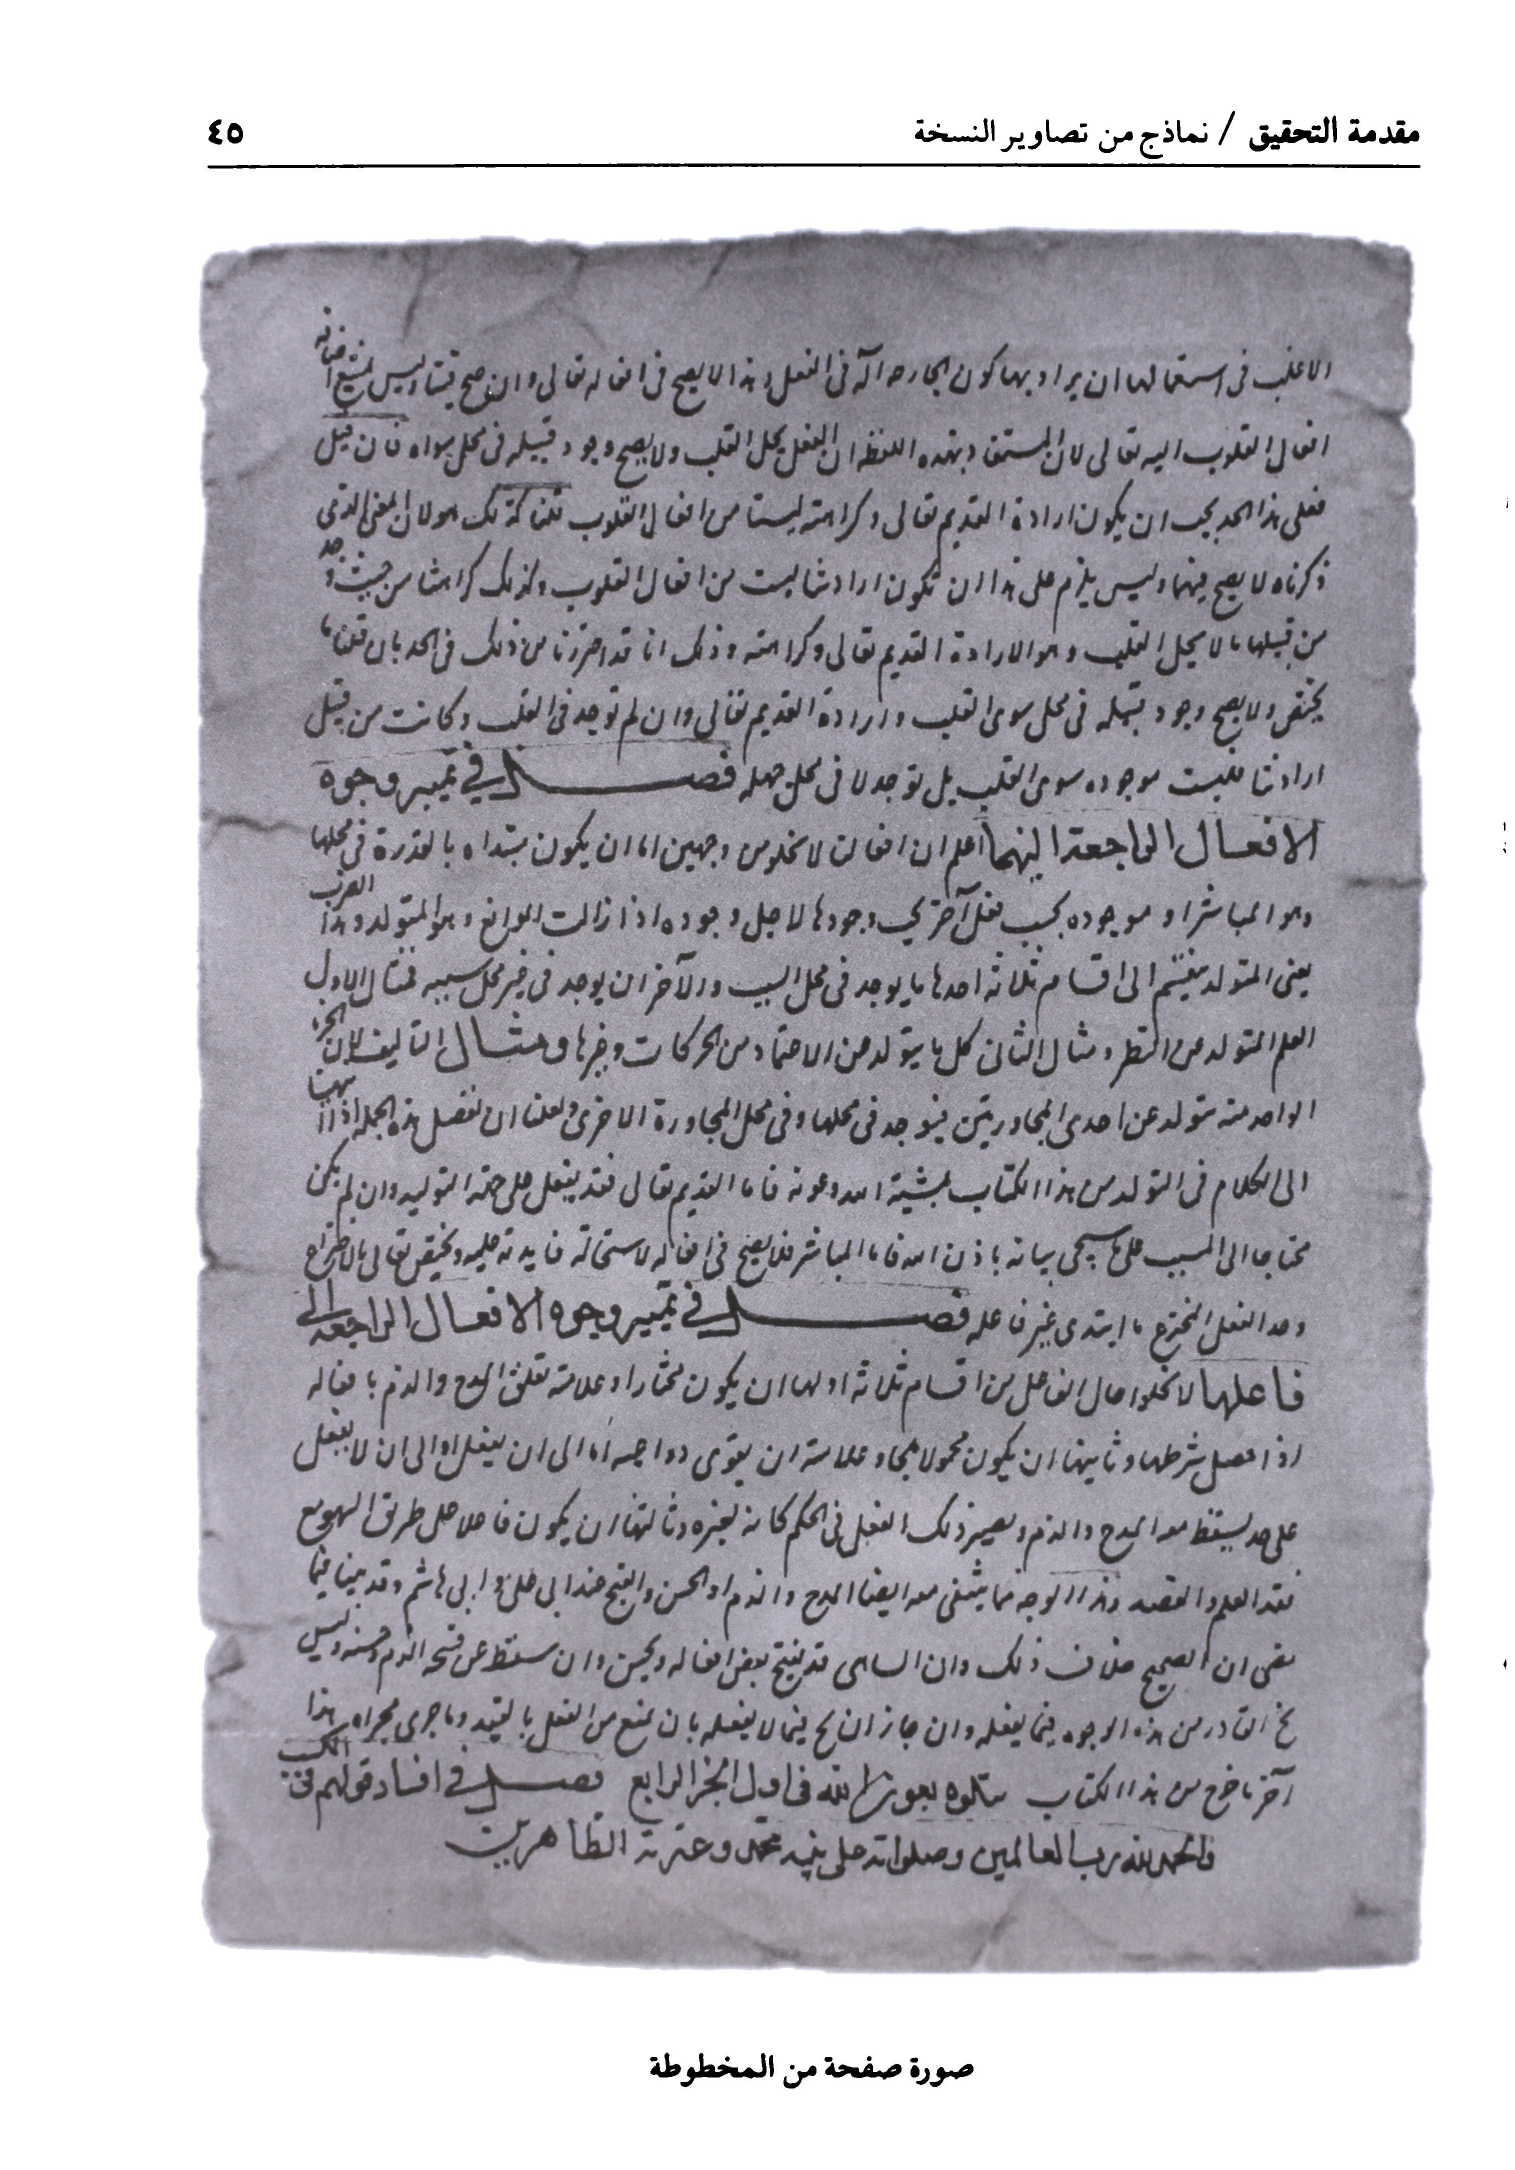 مقدمة التحقيق / نماذج من تصاوير النسخة
٤٥
الاغلب فى استعمالها ان يراد بها كون الجارحه آلة فى الفعل وهذا لا يصح فى افعاله تعالى وان صح فينا وليس يمتنع اضافة
افعال القلوب اليه تعالى لان المستفاد بهذه اللفظه ان الفعل يحل القلب ولا يصح وجود قبيله فى محل سواه فان قيل
فعلى هذا الحد يجب ان يكون ارادة القديم تعالى وكراهته ليستا من افعال القلوب قلنا كذلك هو لان المعنى الذى
ذكرناه لا يصح فيهما وليس يلزم على هذا ان تكون ارادتنا ليست من افعال القلوب وكذلك كراهتنا من حيث وجد
من قبيلها ما لا يحل القلب وهو الارادة القديم تعالى وكراهته وذلك انا قد احترزنا من ذلك فى الحد بان قلنا ما
يختص ولا يصح وجود قبيله فى محل سوى القلب وارادة القديم تعالى وان لم توجد فى القلب وكانت من قبيل
ارادتنا فليست موجوده سوى القلب بل توجد لا فى محل جمله فصل في تمييز وجوه
الافعال الراجعة اليهما اعلم ان افعالنا لا تخلو من وجهين اما ان يكون مبتداه بالقدرة فى محلها
وهو المباشر او موجوده بحسب فعل آخر يجب وجودها لاجل وجوده اذا زالت الموانع وهو المتولد وهذا الضرب
يعنى المتولد ينقسم الى اقسام ثلاثه احدها ما يوجد فى محل السبب والآخر ان يوجد فى غير محل سببه فمثال الاول
العلم المتولد عن النظر ومثال الثانى كل ما يتولد عن الاعتماد من الحركات وغيرها ومثال التاليف لان الجزء
الواحد منه متولد عن احدى المجاورتين فيوجد فى محلها وفى محل المجاورة الاخرى ولعلنا ان نفصل هذه الجمله اذا انتهينا
الى الكلام فى التولد من هذا الكتاب بمشيئة الله وعونه فاما القديم تعالى فقد يفعل على جهة التوليد وان لم يكن
محتاجا الى السبب على ما سيجى بيانه باذن الله فاما المباشر فلا يصح فى افعاله لاستحالة فايدته عليه ويختص تعالى بالاختراع
وحد الفعل المخترع ما ابتدى غير فاعله فصل في تمييز وجوه الافعال الراجعة الى
فاعلها لا تخلوا حال الفاعل من اقسام ثلاثة اولها ان يكون مختارا وعلامته تعلق المدح والذم بافعاله
اذا حصل شرطها وثانيها ان يكون محمولا ملجا وعلامته ان يقوى دواعيه اما الى ان يفعل او الى ان لا يفعل
على حد يسقط معه المدح والذم ويصير ذلك الفعل فى الحكم كانه لغيره وثالثها ان يكون فاعلا على طريق السهو مع
فقد العلم والقصد وهذا الوجه مما ينتفى معه ايضا المدح والذم او الحسن والقبح عند ابى على وابى هاشم وقد بينا فيما
مضى ان الصحيح خلاف ذلك وان الساهى قد يقبح بعض افعاله ويحسن وان سقط عن قبحه الذم وحسنه وليس
يخ القادر من هذه الوجوه فيما يفعله وان جاز ان يخ فيما لا يفعله بان يمنع من الفعل بالقيد وما جرى مجراه هذا
آخر ما خرج من هذا الكتاب يتلوه بعون الله فى اول الجز الرابع فصل في افساد قولهم فى الكسب
والحمد لله رب العالمين وصلوته على نبيه محمد وعترته الطاهرين
صورة صفحة من المخطوطة